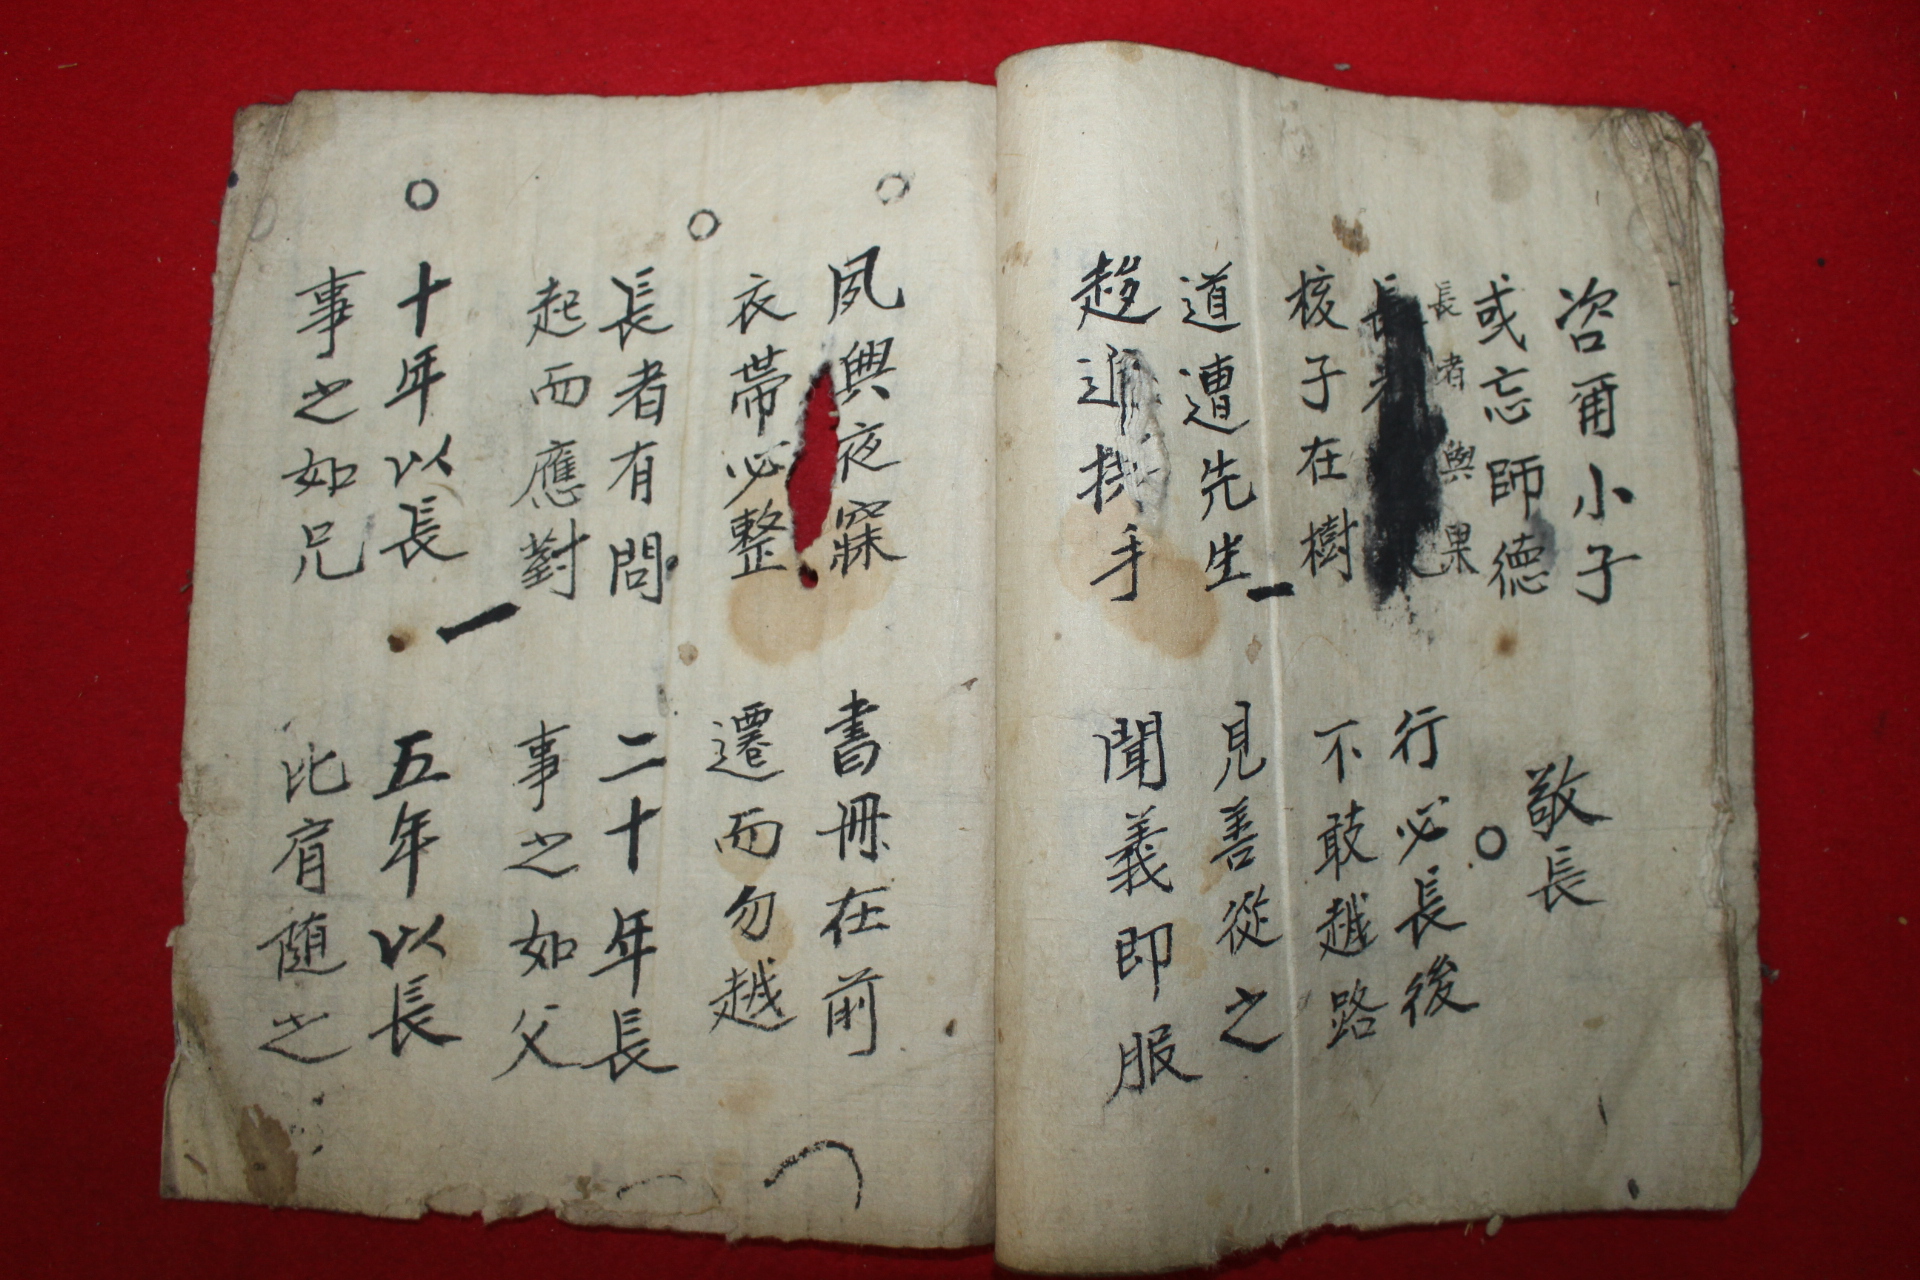 咨爾小子 敬長
或忘師德
長者與果
長 行必長後
核子在樹 不敢越路
道遭先生 見善從之
趍進拱手 聞義即服
夙興夜寐 書冊在前
衣帶必整 遷而勿越
長者有問 二十年長
起而應對 事之如父
十年以長 五年以長
事之如兄 比肩随之